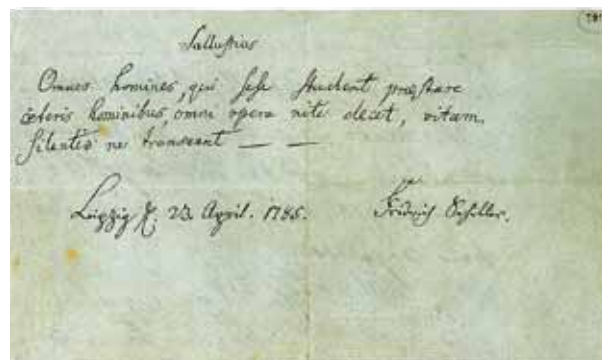 Sallustius
Omnes homines, qui sese student præstare
cæteris hominibus, omni opera niti decet, vitam
silentio ne transeant — —
Leipzig d. 23. April. 1785.
Fridrich Schiller.